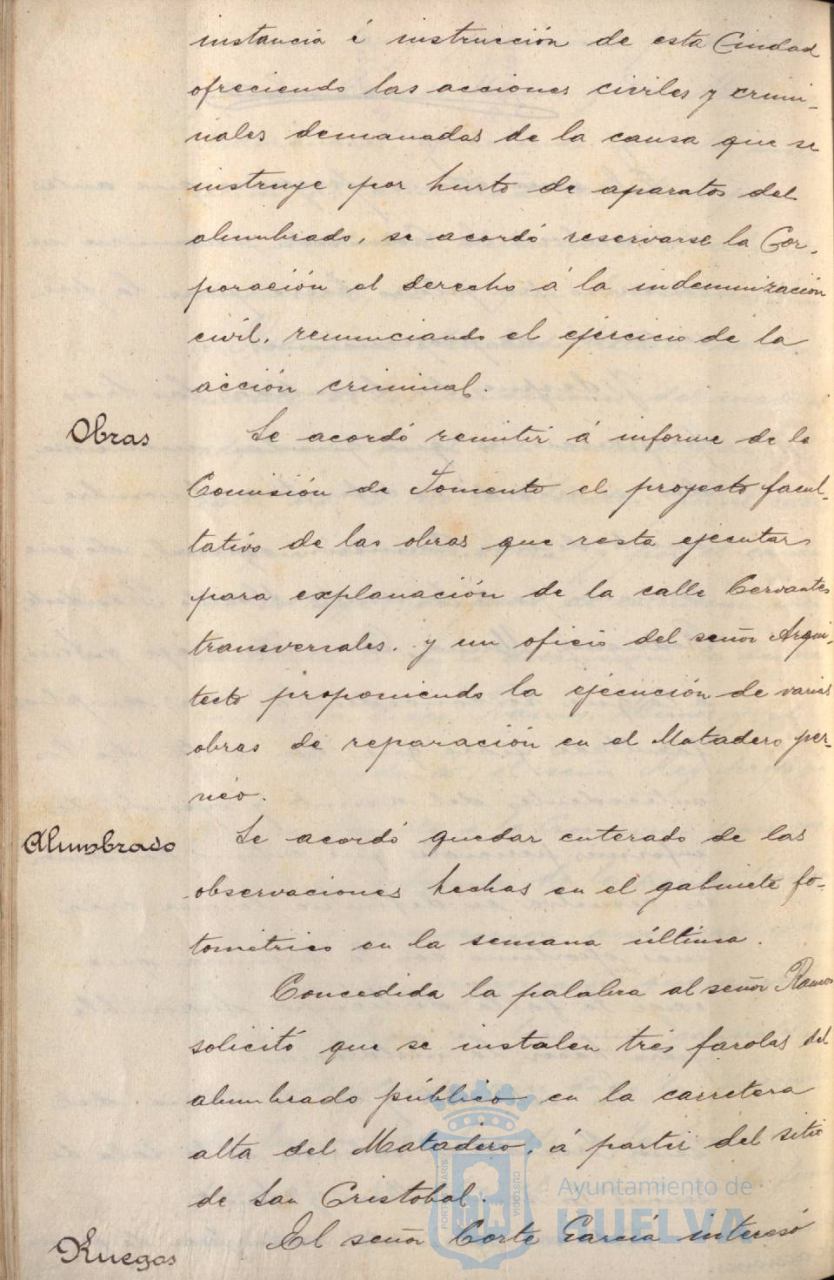 instancia é instrucción de esta Ciudad
ofreciendo las acciones civiles y crimi-
nales demanadas de la causa que se
instruye por hurto de aparatos del
alumbrado, se acordó reservarse la Cor-
poración el derecho á la indemnización
civil, renunciando el ejercicio de la
acción criminal.
Obras
Se acordó remitir á informe de la
Comisión de Fomento el proyecto facul-
tativo de las obras que resta ejecutar
para explanación de la calle Cervantes
transversales, y un oficio del señor Arqui-
tecto proponiendo la ejecución de varias
obras de reparación en el Matadero per-
neo.
Alumbrado
Se acordó quedar enterado de las
observaciones hechas en el gabinete fo-
tométrico en la semana última.
Concedida la palabra al señor Ramos
solicitó que se instalen tres farolas del
alumbrado público en la carretera
alta del Matadero, á partir del sitio
de San Cristobal.
Ruegos
El señor Corte García interesó
Ayuntamiento de
HUELVA